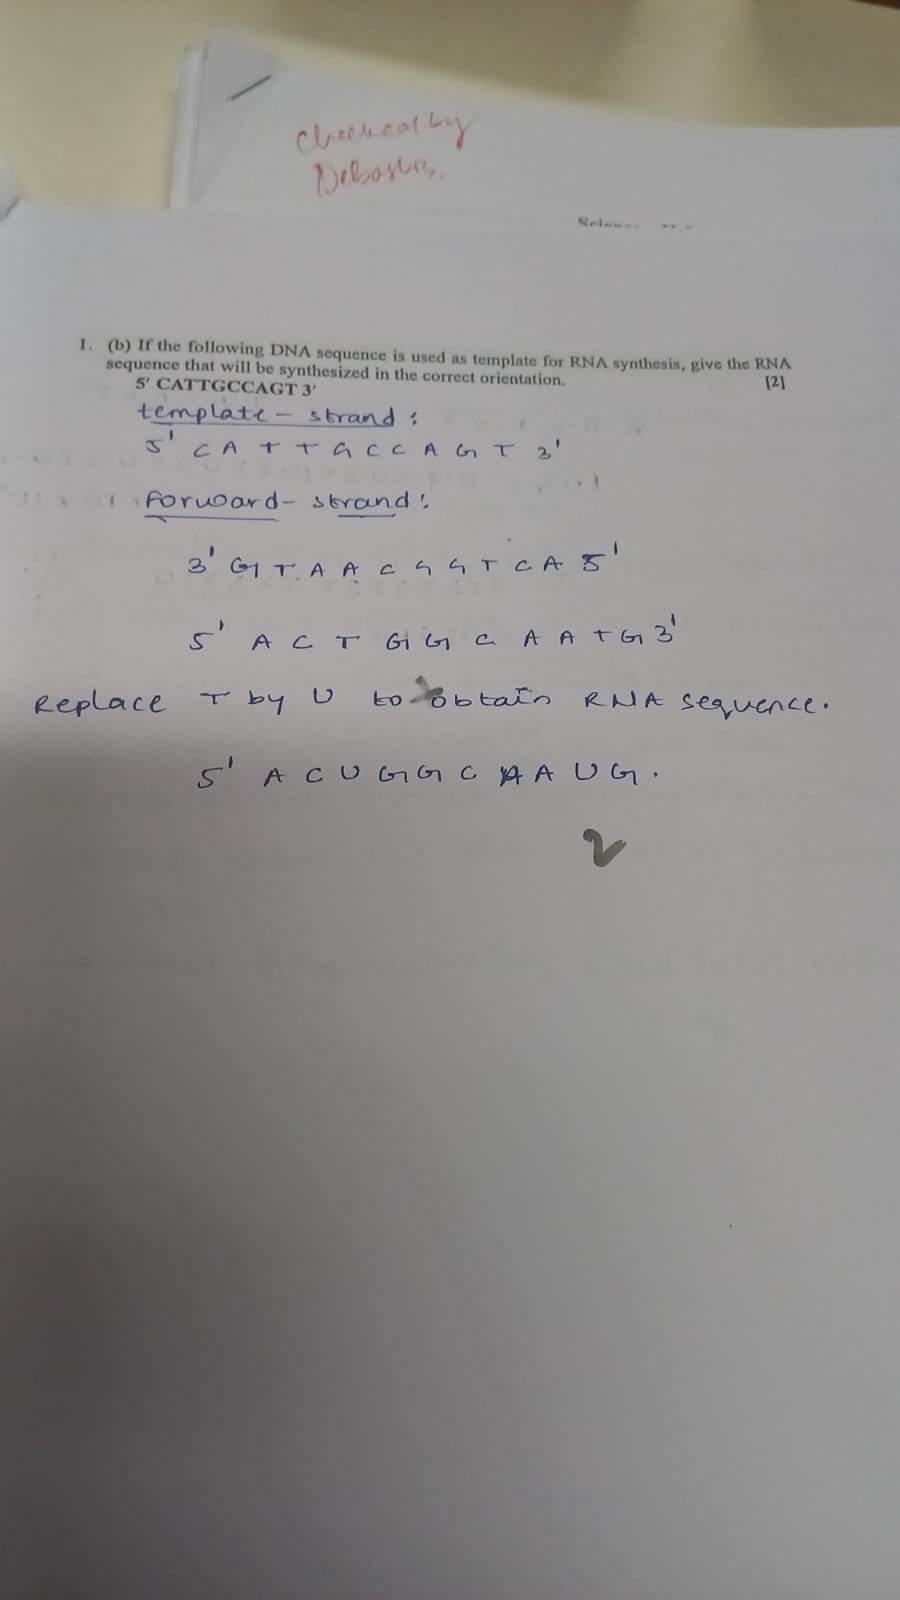 checked by
Debashis.
1. (b) If the following DNA sequence is used as template for RNA synthesis, give the RNA
sequence that will be synthesized in the correct orientation. [2]
5' CATTGCCAGT 3'
template - strand :
5' C A T T G C C A G T 3'
Forward - strand :
3' G T A A C G G T C A 5'
5' A C T G G C A A T G 3'
Replace T by U to obtain RNA sequence.
5' A C U G G C A A U G .
2